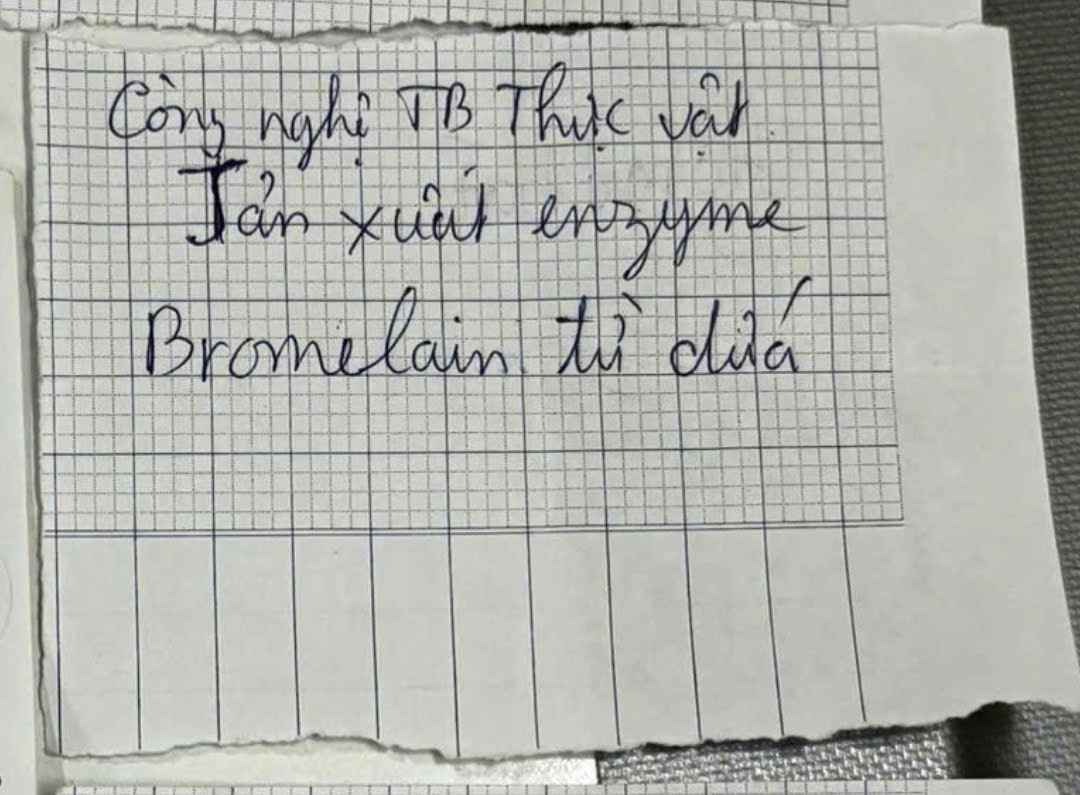 Công nghệ TB Thực vật
Sản xuất enzyme
Bromelain từ dứa